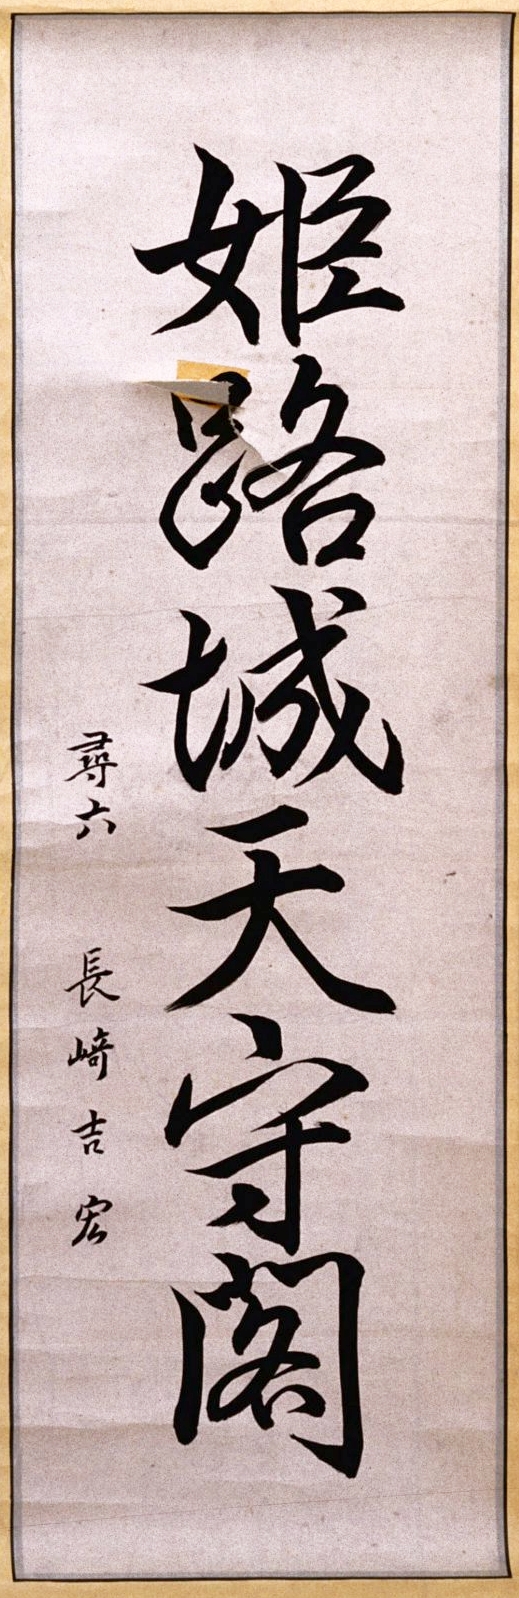 姫路城天守閣
尋六 長﨑吉宏